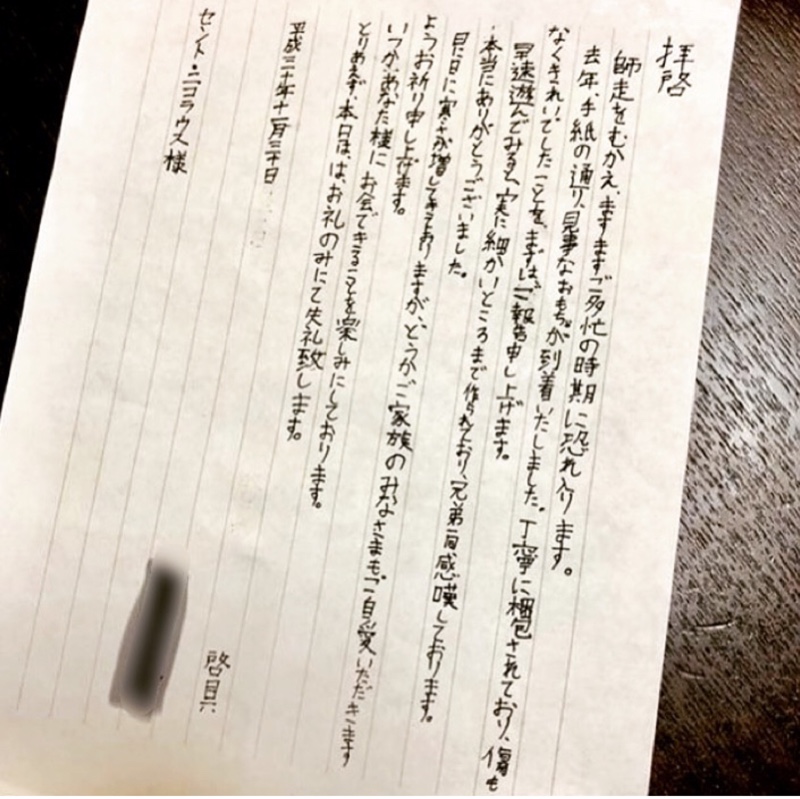 拝啓
師走をむかえ、ますますご多忙の時期に恐れ入ります。
去年、手紙の通り、見事なおもちゃが到着いたしました。丁寧に梱包されており、傷も
なくきれいでしたことを、まずは、ご報告申し上げます。
早速遊んでみると、実に細かいところまで作られており、兄弟一同感嘆しております。
本当にありがとうございました。
日に日に寒さが増してきておりますが、どうかご家族のみなさまも、ご自愛いただきます
ようお祈り申し上げます。
いつか、あなた様にお会できることを楽しみにしております。
とりあえず、本日は、はお礼のみにて失礼致します。
啓具
平成三十年十一月三十日
セント・ニコラウス様